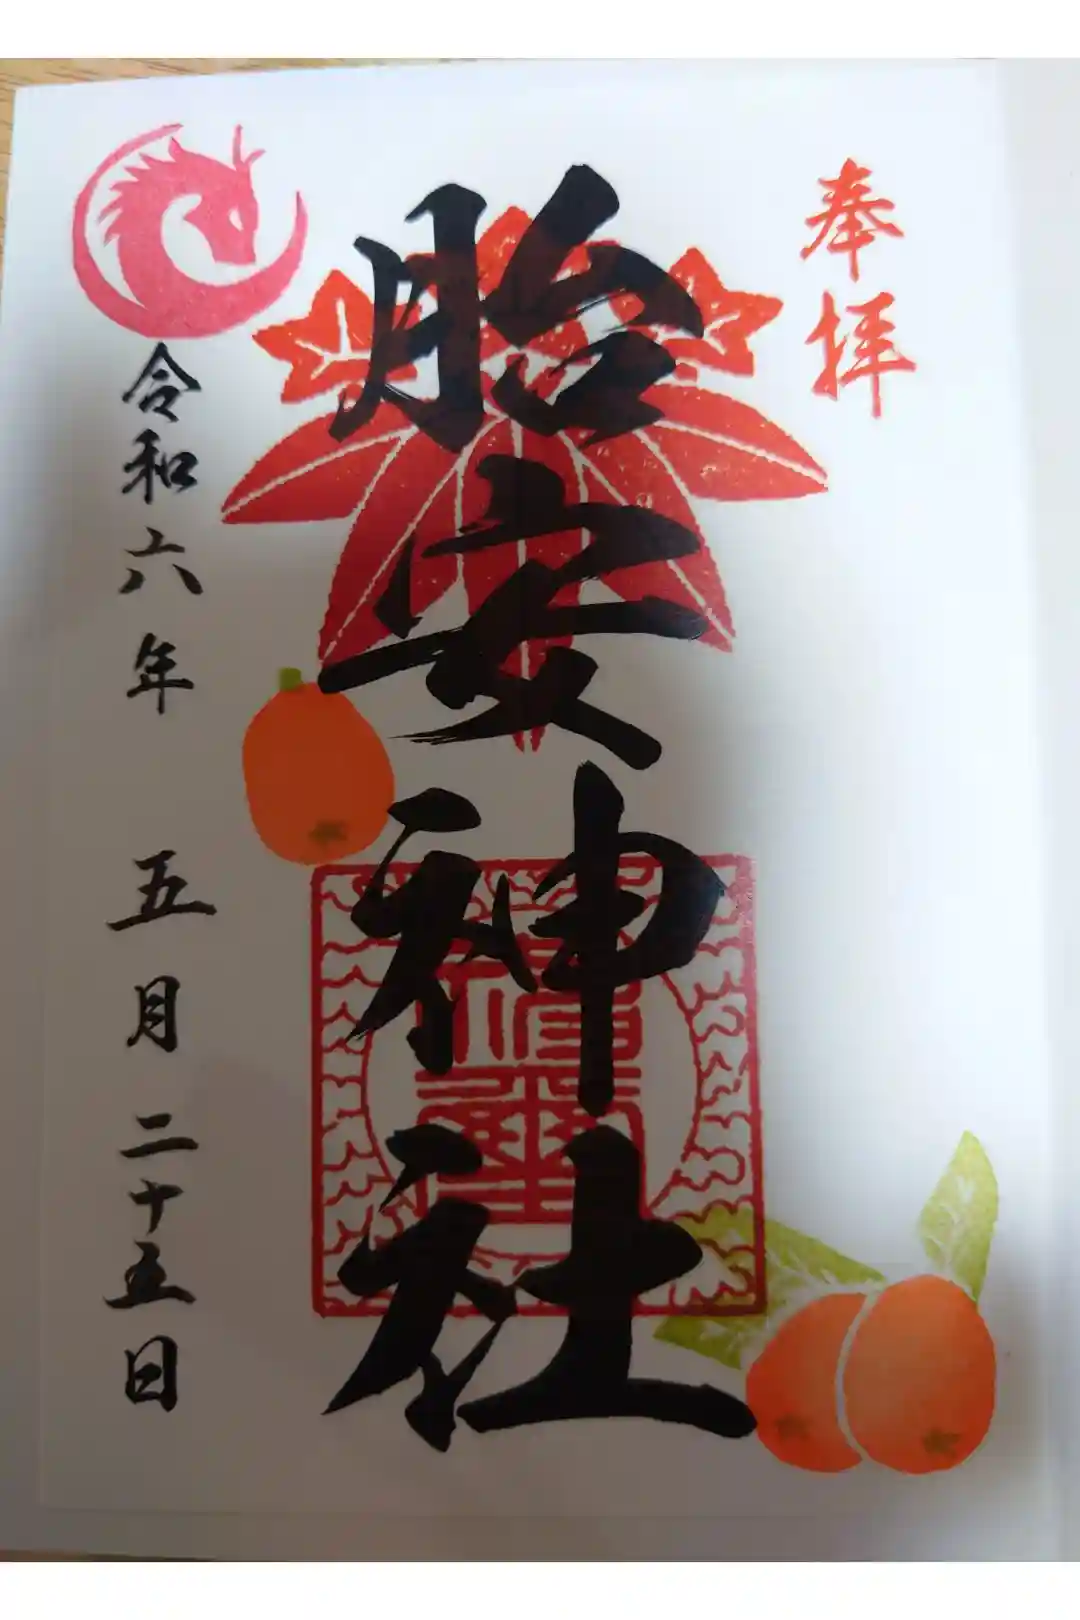 奉拝
胎安神社
令和六年 五月二十五日